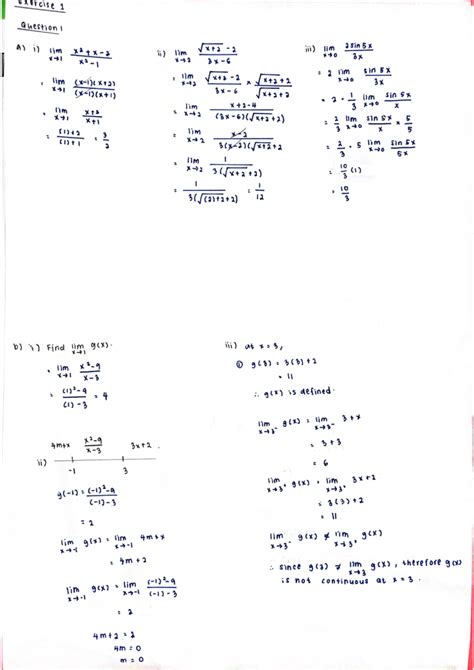 Exercise 1
Question 1
A) i) lim x→1 (x² + x - 2)/(x² - 1)
= lim x→1 (x-1)(x+2)/(x-1)(x+1)
= lim x→1 (x+2)/(x+1)
= ((1)+2)/((1)+1) = 3/2
ii) lim x→2 (√(x+2) - 2)/(3x-6)
= lim x→2 (√(x+2) - 2)/(3x-6) × (√(x+2) + 2)/(√(x+2) + 2)
= lim x→2 (x+2-4)/((3x-6)(√(x+2) + 2))
= lim x→2 (x-2)/(3(x-2)(√(x+2) + 2))
= lim x→2 1/(3(√(x+2) + 2))
= 1/(3(√((2)+2) + 2)) = 1/12
iii) lim x→0 (2 sin 5x)/(3x)
= 2 lim x→0 (sin 5x)/(3x)
= 2 · 1/3 lim x→0 (sin 5x)/x
= 2/3 lim x→0 (sin 5x)/x × 5/5
= 2/3 · 5 lim x→0 (sin 5x)/(5x)
= 10/3 (1)
= 10/3
b) i) Find lim x→1 g(x).
= lim x→1 (x² - 9)/(x - 3)
= ((1)² - 9)/((1) - 3) = 4
ii)
4m+x (x²-9)/(x-3) 3x+2
-1 3
g(-1) = ((-1)² - 9)/((-1) - 3)
= 2
lim x→-1 g(x) = lim x→-1 4m+x
= 4m+2
lim x→-1 g(x) = lim x→-1 ((-1)² - 9)/((-1) - 3)
= 2
4m+2 = 2
4m = 0
m = 0
iii) at x = 3,
g(3) = 3(3)+2
= 11
∴ g(x) is defined.
lim x→3⁻ g(x) = lim x→3⁻ 3+x
= 3+3
= 6
lim x→3⁺ g(x) = lim x→3⁺ 3x+2
= 3(3)+2
= 11
lim x→3⁻ g(x) ≠ lim x→3⁺ g(x)
∴ since g(3) ≠ lim x→3 g(x), therefore g(x)
is not continuous at x = 3.